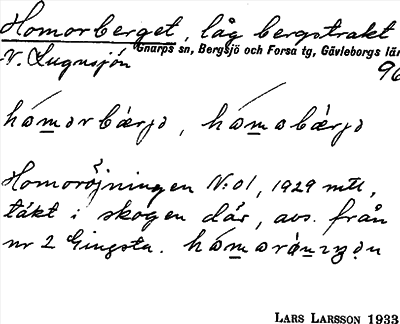 Homorberget, låg bergstrakt
Gnarps sn, Bergsjö och Forsa tg, Gävleborgs län
N. Lugnsjön
96
hómorbærjə, hómobærjə
Homoröjningen N:o1, 1929 mtl,
täkt i skogen där, avs. från
nr 2 Gingsta.
LARS LARSSON 1933